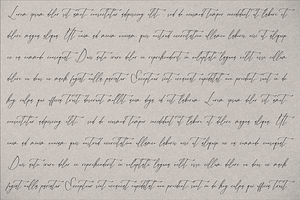 Lorem ipsum dolor sit amet, consectetur adipiscing elit, sed do eiusmod tempor incididunt ut labore et
dolore magna aliqua. Ut enim ad minim veniam, quis nostrud exercitation ullamco laboris nisi ut aliquip
ex ea commodo consequat. Duis aute irure dolor in reprehenderit in voluptate velit esse cillum
dolore eu fugiat nulla pariatur. Excepteur sint occaecat cupidatat non proident, sunt in
culpa qui officia deserunt mollit anim id est laborum. Lorem ipsum dolor sit amet,
consectetur adipiscing elit, sed do eiusmod tempor incididunt ut labore et dolore magna aliqua. Ut
enim ad minim veniam, quis nostrud exercitation ullamco laboris nisi ut aliquip ex ea commodo consequat.
Duis aute irure dolor in reprehenderit in voluptate velit esse cillum dolore eu
fugiat nulla pariatur. Excepteur sint occaecat cupidatat non proident, sunt in culpa qui officia